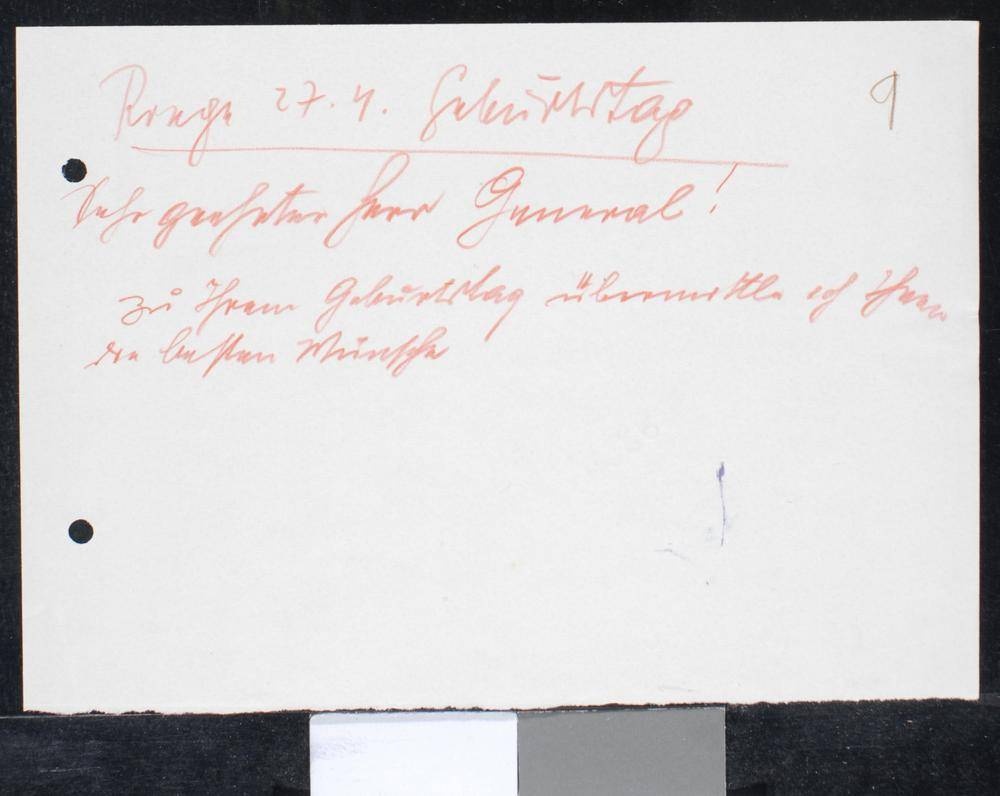 Ronge 27. 4. Geburtstag
9
Sehr geehrter Herr General!
zu Ihrem Geburtstag übermittle ich Ihnen
die besten Wünsche